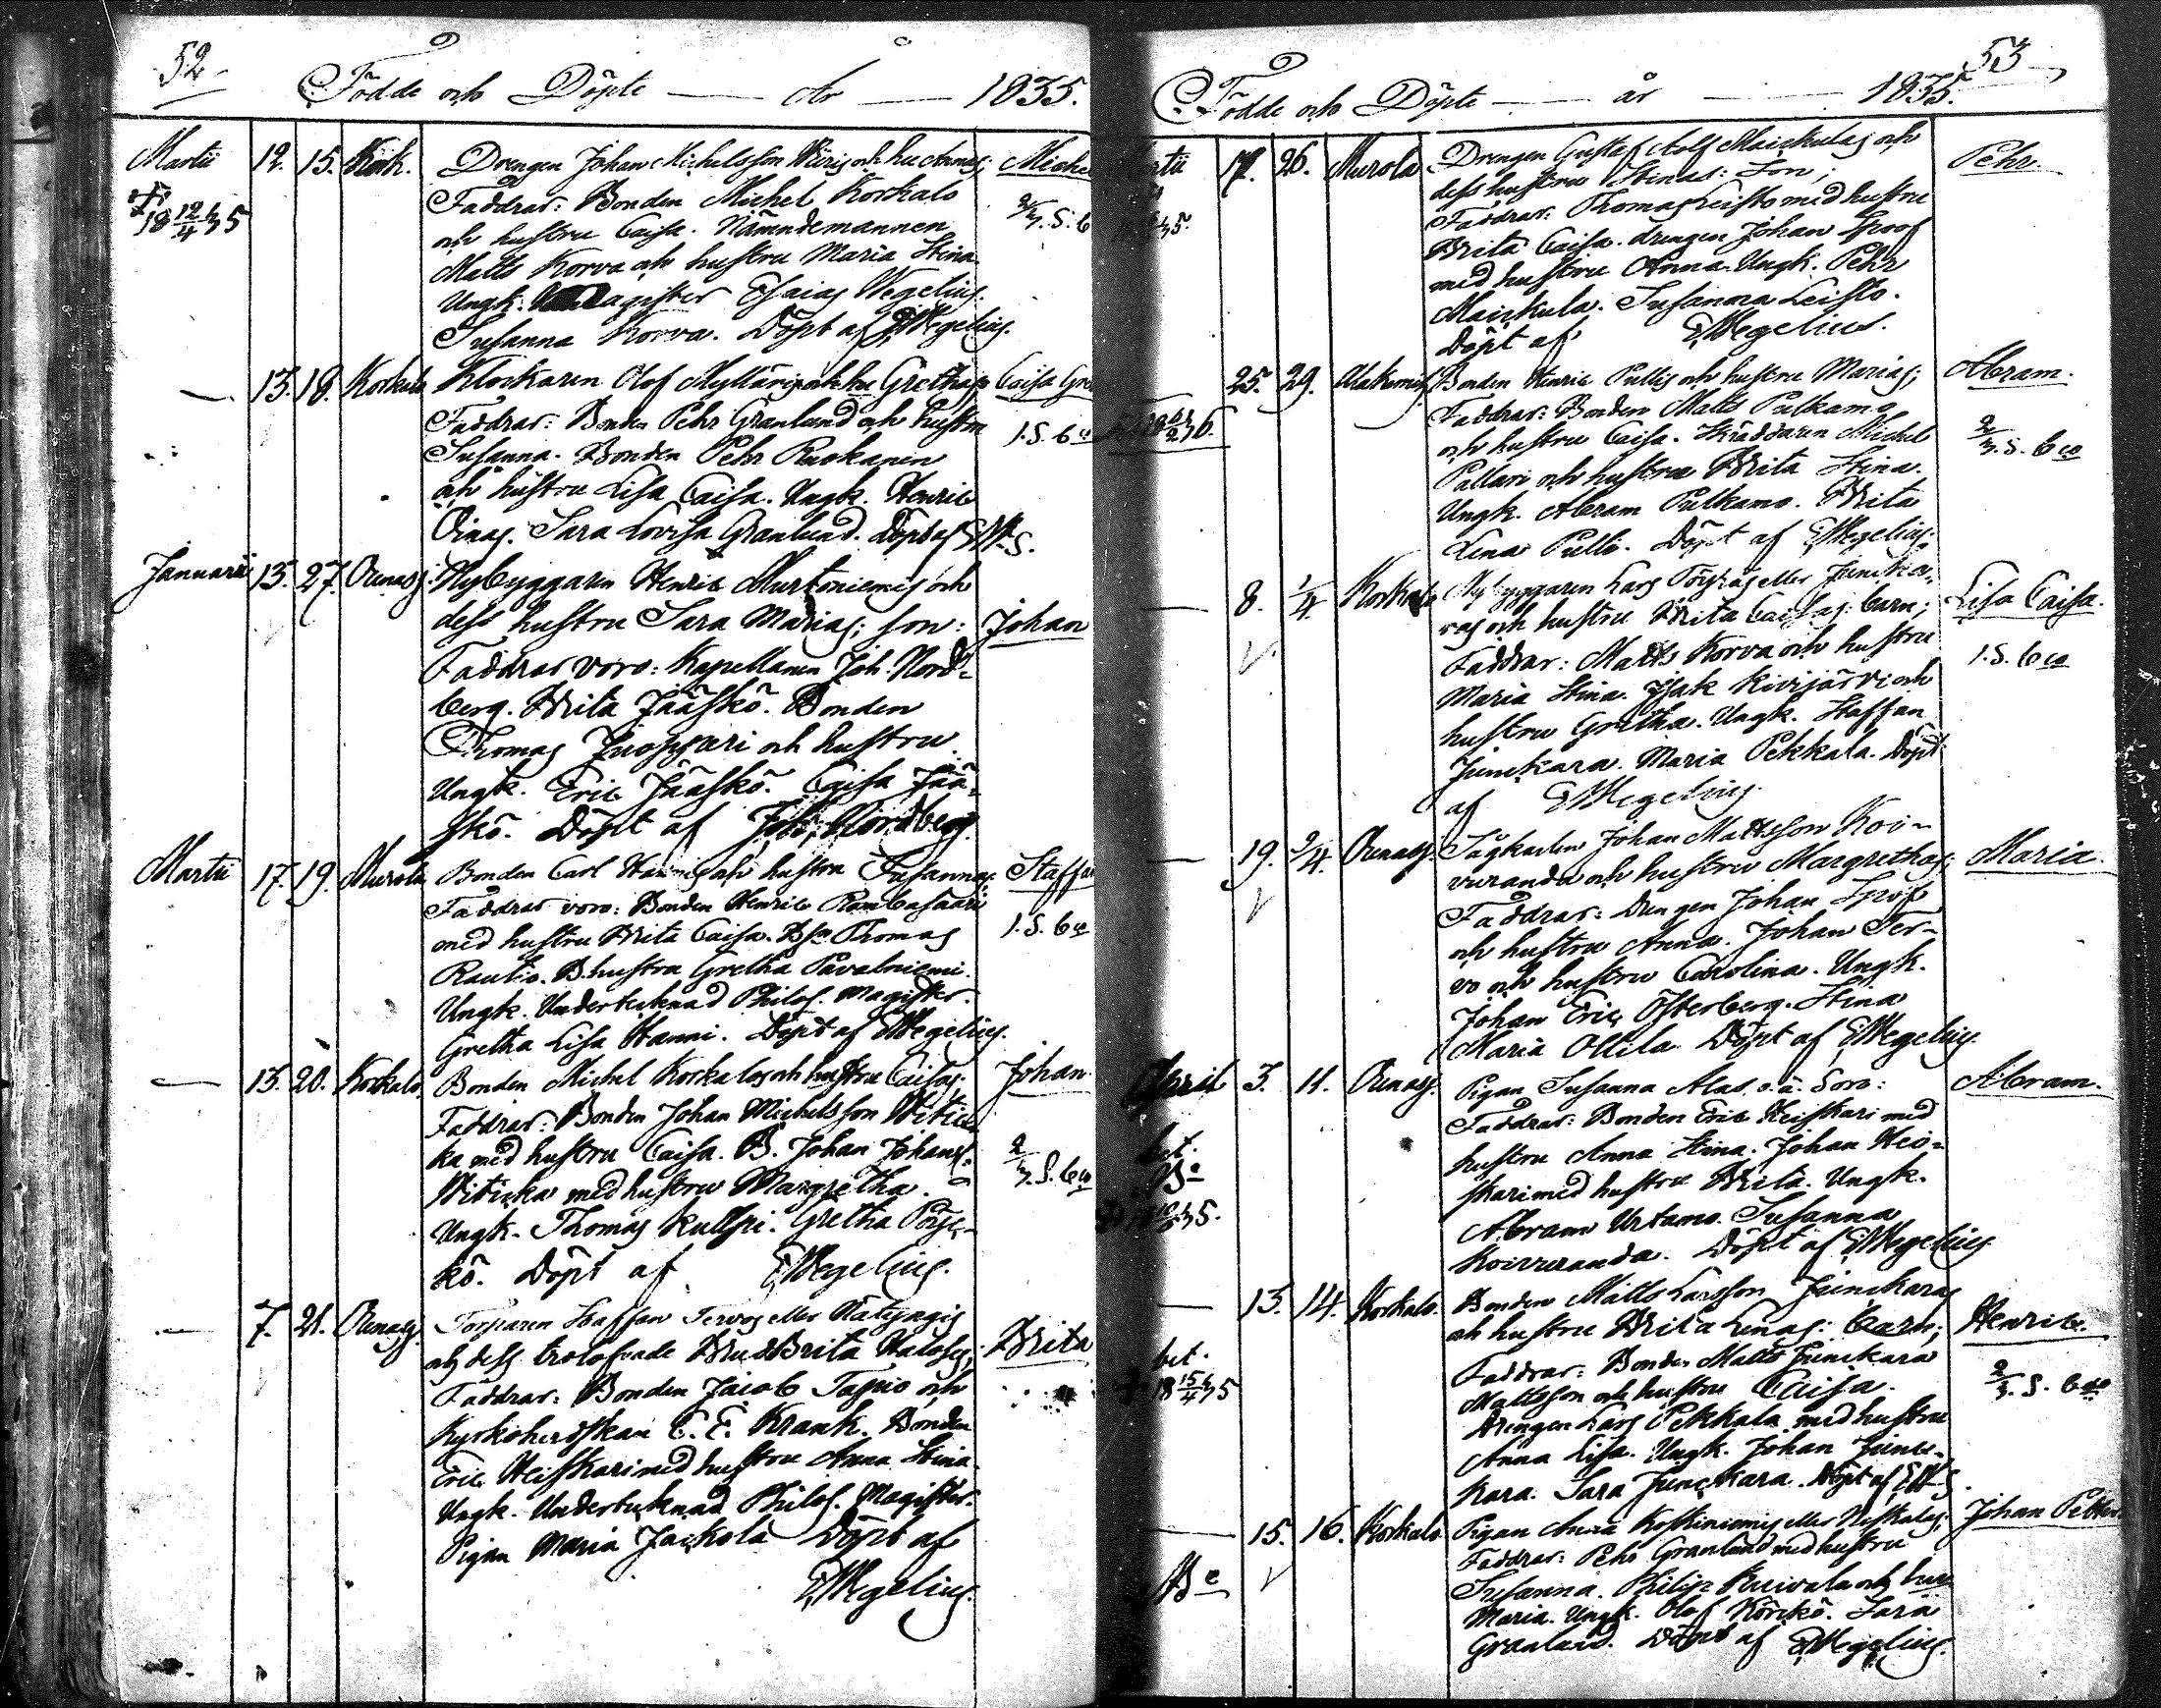 52
Födde och Döpte — År — 1835.
Martii 12. 15. Kork. Drengen Johan Michelsson Wiiris och hu Annas; Michel
Faddrar: Bonden Michel Korkalo
18 12/4 35
och hustru Caisa. Nämndemannen
Matts Korva och hustru Maria Stina
Ungk: Magister Esaias Wegelius.
Susanna Korva. Döpt af EWegelius.
— 13. 18. Korkalo Klockaren Olof Mylläris och hu Grethas Caisa Gre
Faddrar: Bonden Pehr Granlund och hustru
Susanna. Bonden Pehr Ruokanen
och hustru Lisa Caisa. Ungk. Henric
Oinas. Sara Lovisa Granlund. Döpt af EW-s.
Januarii 13. 27. Ounasj: Nybyggaren Henric Murtoniemis och
dess hustru Sara Marias; son: Johan
Faddrar voro: Kapellanen Joh. Nord-
berg. Brita Jääskö. Bonden
Thomas Juopperi och hustru
Ungk. Eric Jääskö. Caisa Jää-
skö. Döpt af Joh. Nordberg.
Martii 17. 19. Murola Bonden Carl Hannis och hustru Susannas; Staffan
Faddrar voro: Bonden Henric Rambasaari
med hustru Brita Caisa. Bsn Thomas
Rautio. B.hustru Gretha Pavalniemi.
Ungk. Undertecknad Philos. Magister.
Gretha Lisa Hanni. Döpt af EWegelius.
— 13. 20. Korkalo Bonden Michel Korkalos och hustru Caisas; Johan
Faddrar: Bonden Johan Michelsson Witic-
ka med hustru Caisa. B. Johan Johans:
Witicka med hustru Margretha.
Ungk. Thomas Kulpi. Gretha Pöyk-
kö. Döpt af EWegelius.
— 7. 21. Ounasj. Torparen Staffan Tervos eller Nätyngis
och dess trolofvade Brud Brita Halos; Brita
Faddrar: Bonden Jacob Tapio och
Kyrkoherdskan C. E. Krank. Bonden
Eric Heiskari med hustru Anna Stina
Ungk. Undertecknad Philos. Magister.
Pigan Maria Jackola Döpt af
EWegelius.
53
Födde och Döpte — år — 1835.
Martii 17. 26. Murola Drengen Gustaf Adolf Mairkulas och Pehr
dess hustru Stinas: Son;
Faddrar: Thomas Leisto med hustru
Brita Caisa. drengen Johan Spoof
med hustru Anna. Ungk. Pehr
Mairkula. Susanna Leisto.
Döpt af EWegelius.
25. 29. Bonden Henric Pullis och hustru Marias; Abram.
Faddrar: Bonden Matts Pulkamo
och hustru Caisa. Skräddaren Michel
Pallari och hustru Brita Stina.
Ungk. Abram Pulkamo. Brita
Lena Pulli. Döpt af EWegelius.
— 8. 1/4 Korkalo Nybyggaren Lars Törmäs eller Juncka-
ras och hustru Brita Caisas: barn; Lisa Caisa.
Faddrar: Matts Korva och hustru
Maria Stina. Isak Kivijärvi och
hustru Gretha. Ungk. Staffan
Junckara. Maria Pekkala. Döpt
af EWegelius.
— 19. 2/4. Ounasj. Tågkarlen Johan Mattsson Koi-
vurandas och hustru Margrethas; Maria.
Faddrar: Drengen Johan Spof
och hustru Anna. Johan Ter-
vo och hustru Carolina. Ungk.
Johan Eric Österberg. Stina
Maria Ollila. Döpt af EWegelius.
April 3. 11. Ounasj. Pigan Susanna Alas o.ä. Son: Abram.
Faddrar: Bonden Eric Heiskari med
hustru Anna Stina. Johan Hei-
skari med hustru Brita. Ungk.
Abram Urtamo. Susanna
Koivuranda. Döpt af EWegelius.
— 13. 14. Korkalo. Bonden Matts Larsson Junckaras
och hustru Brita Lenas: barn; Henric.
bet.
18 15/4 35
Faddrar: Bonden Matts Junckara
Mattsson och hustru Caisa.
drengen Lars Pekkala med hustru
Anna Lisa. Ungk. Johan Junc-
kara. Sara Junckara. Döpt af EW-s.
— 15. 16. Korkalo Pigan Anna Koskiniemis eller Niskalas; Johan Petter.
Faddrar: Pehr Granlund med hustru
Susanna. Philip Kuivala och hu
Maria. Ungk. Olof Körckö. Sara
Granlund. Döpt af EWegelius.